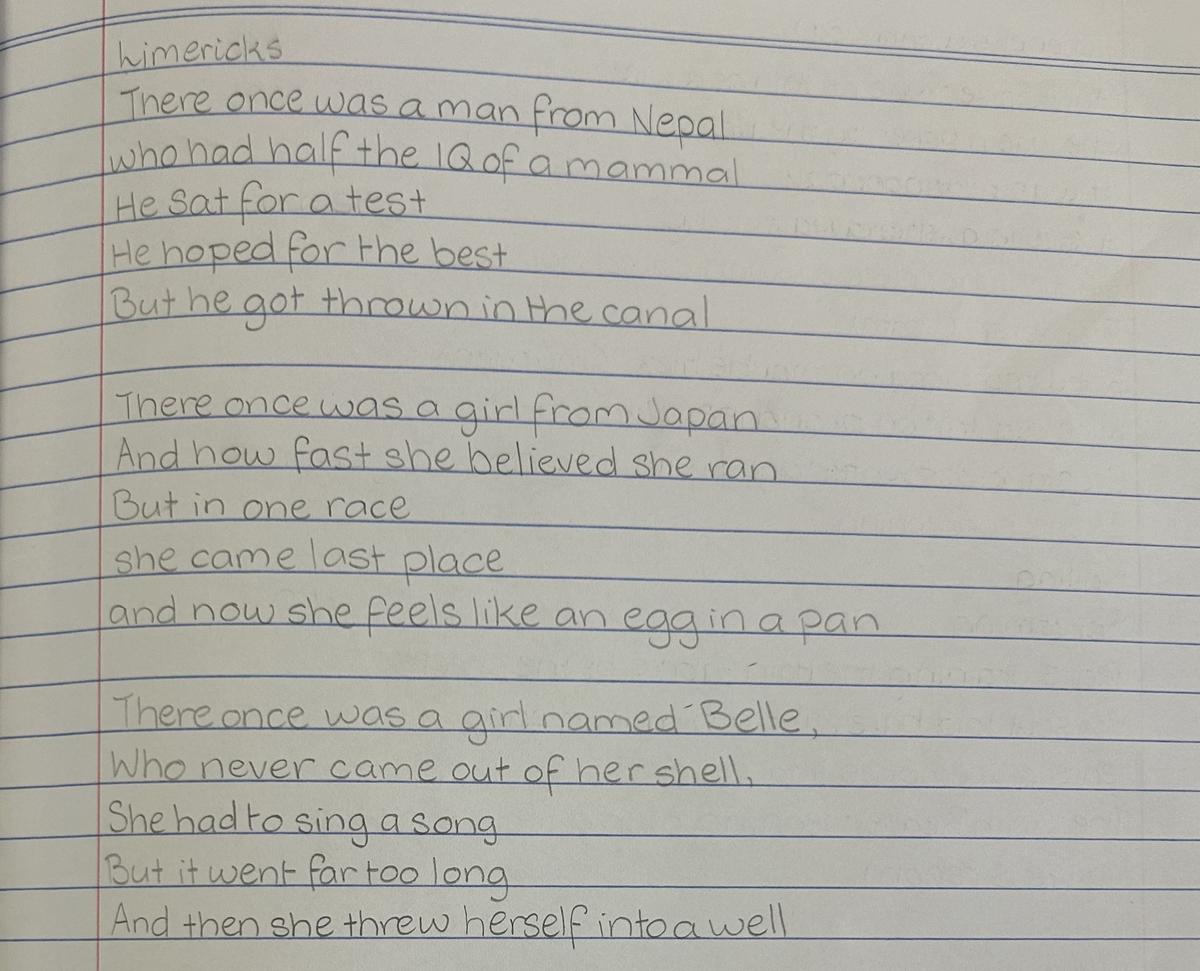 Limericks
There once was a man from Nepal
who had half the IQ of a mammal
He sat for a test
He hoped for the best
But he got thrown in the canal
There once was a girl from Japan
And how fast she believed she ran
But in one race
she came last place
and now she feels like an egg in a pan
There once was a girl named Belle,
Who never came out of her shell,
She had to sing a song
But it went far too long
And then she threw herself into a well